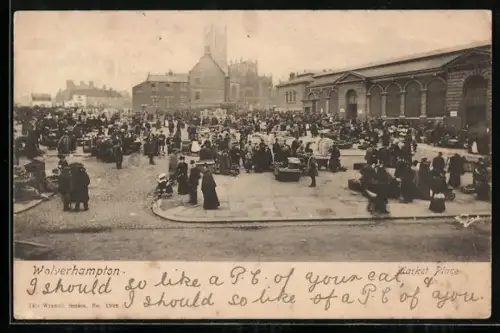 Wolverhampton. Market Place.
I should so like a P.C. of your cat, &
I should so like of a P.C. of you.
Series, No. 1598